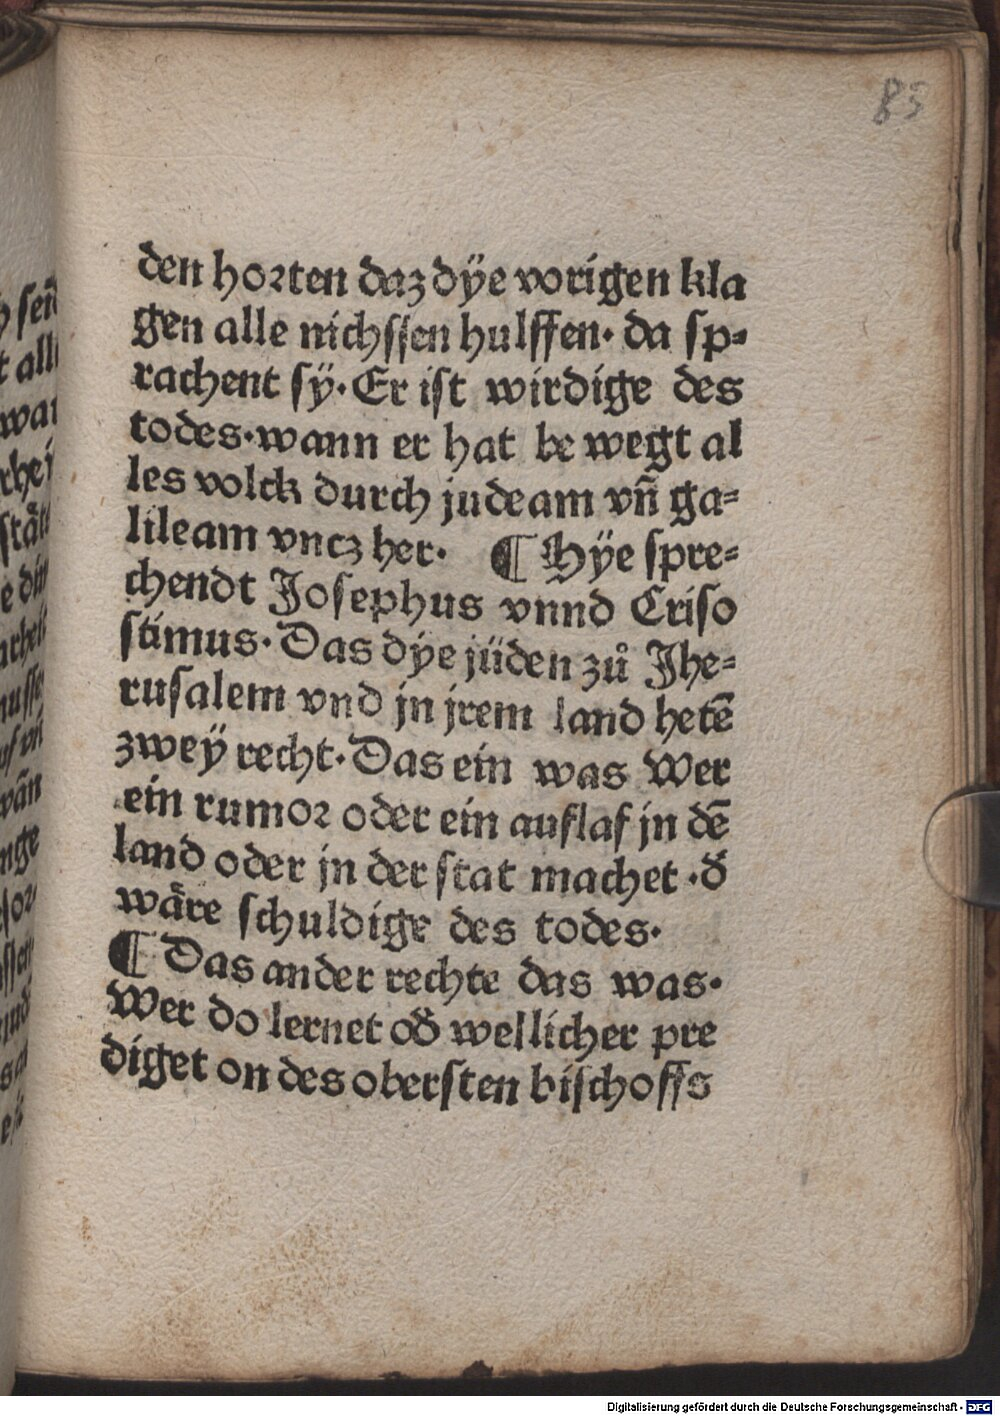 85
den horten daz dÿe vorigen kla
gen alle nichssen hulffen· da sp⸗
rachent sÿ· Er ist wirdige des
todes· wann er hat be wegt al
les volck durch judeam vn̄ ga⸗
lileam vncz her· ¶ Hÿe spre⸗
chendt Josephus vnnd Criso
stimus· Das dÿe jüden zů Jhe⸗
rusalem vnd jn jrem land hetē
zweÿ recht· Das ein was Wer
ein rumor oder ein auflaf jn dē
land oder jn der stat machet ·d̄
wåre schuldige des todes·
¶ Das ander rechte das was·
Wer do lernet od̄ wellicher pre
diget on des obersten bischoffs
Digitalisierung gefördert durch die Deutsche Forschungsgemeinschaft - DFG